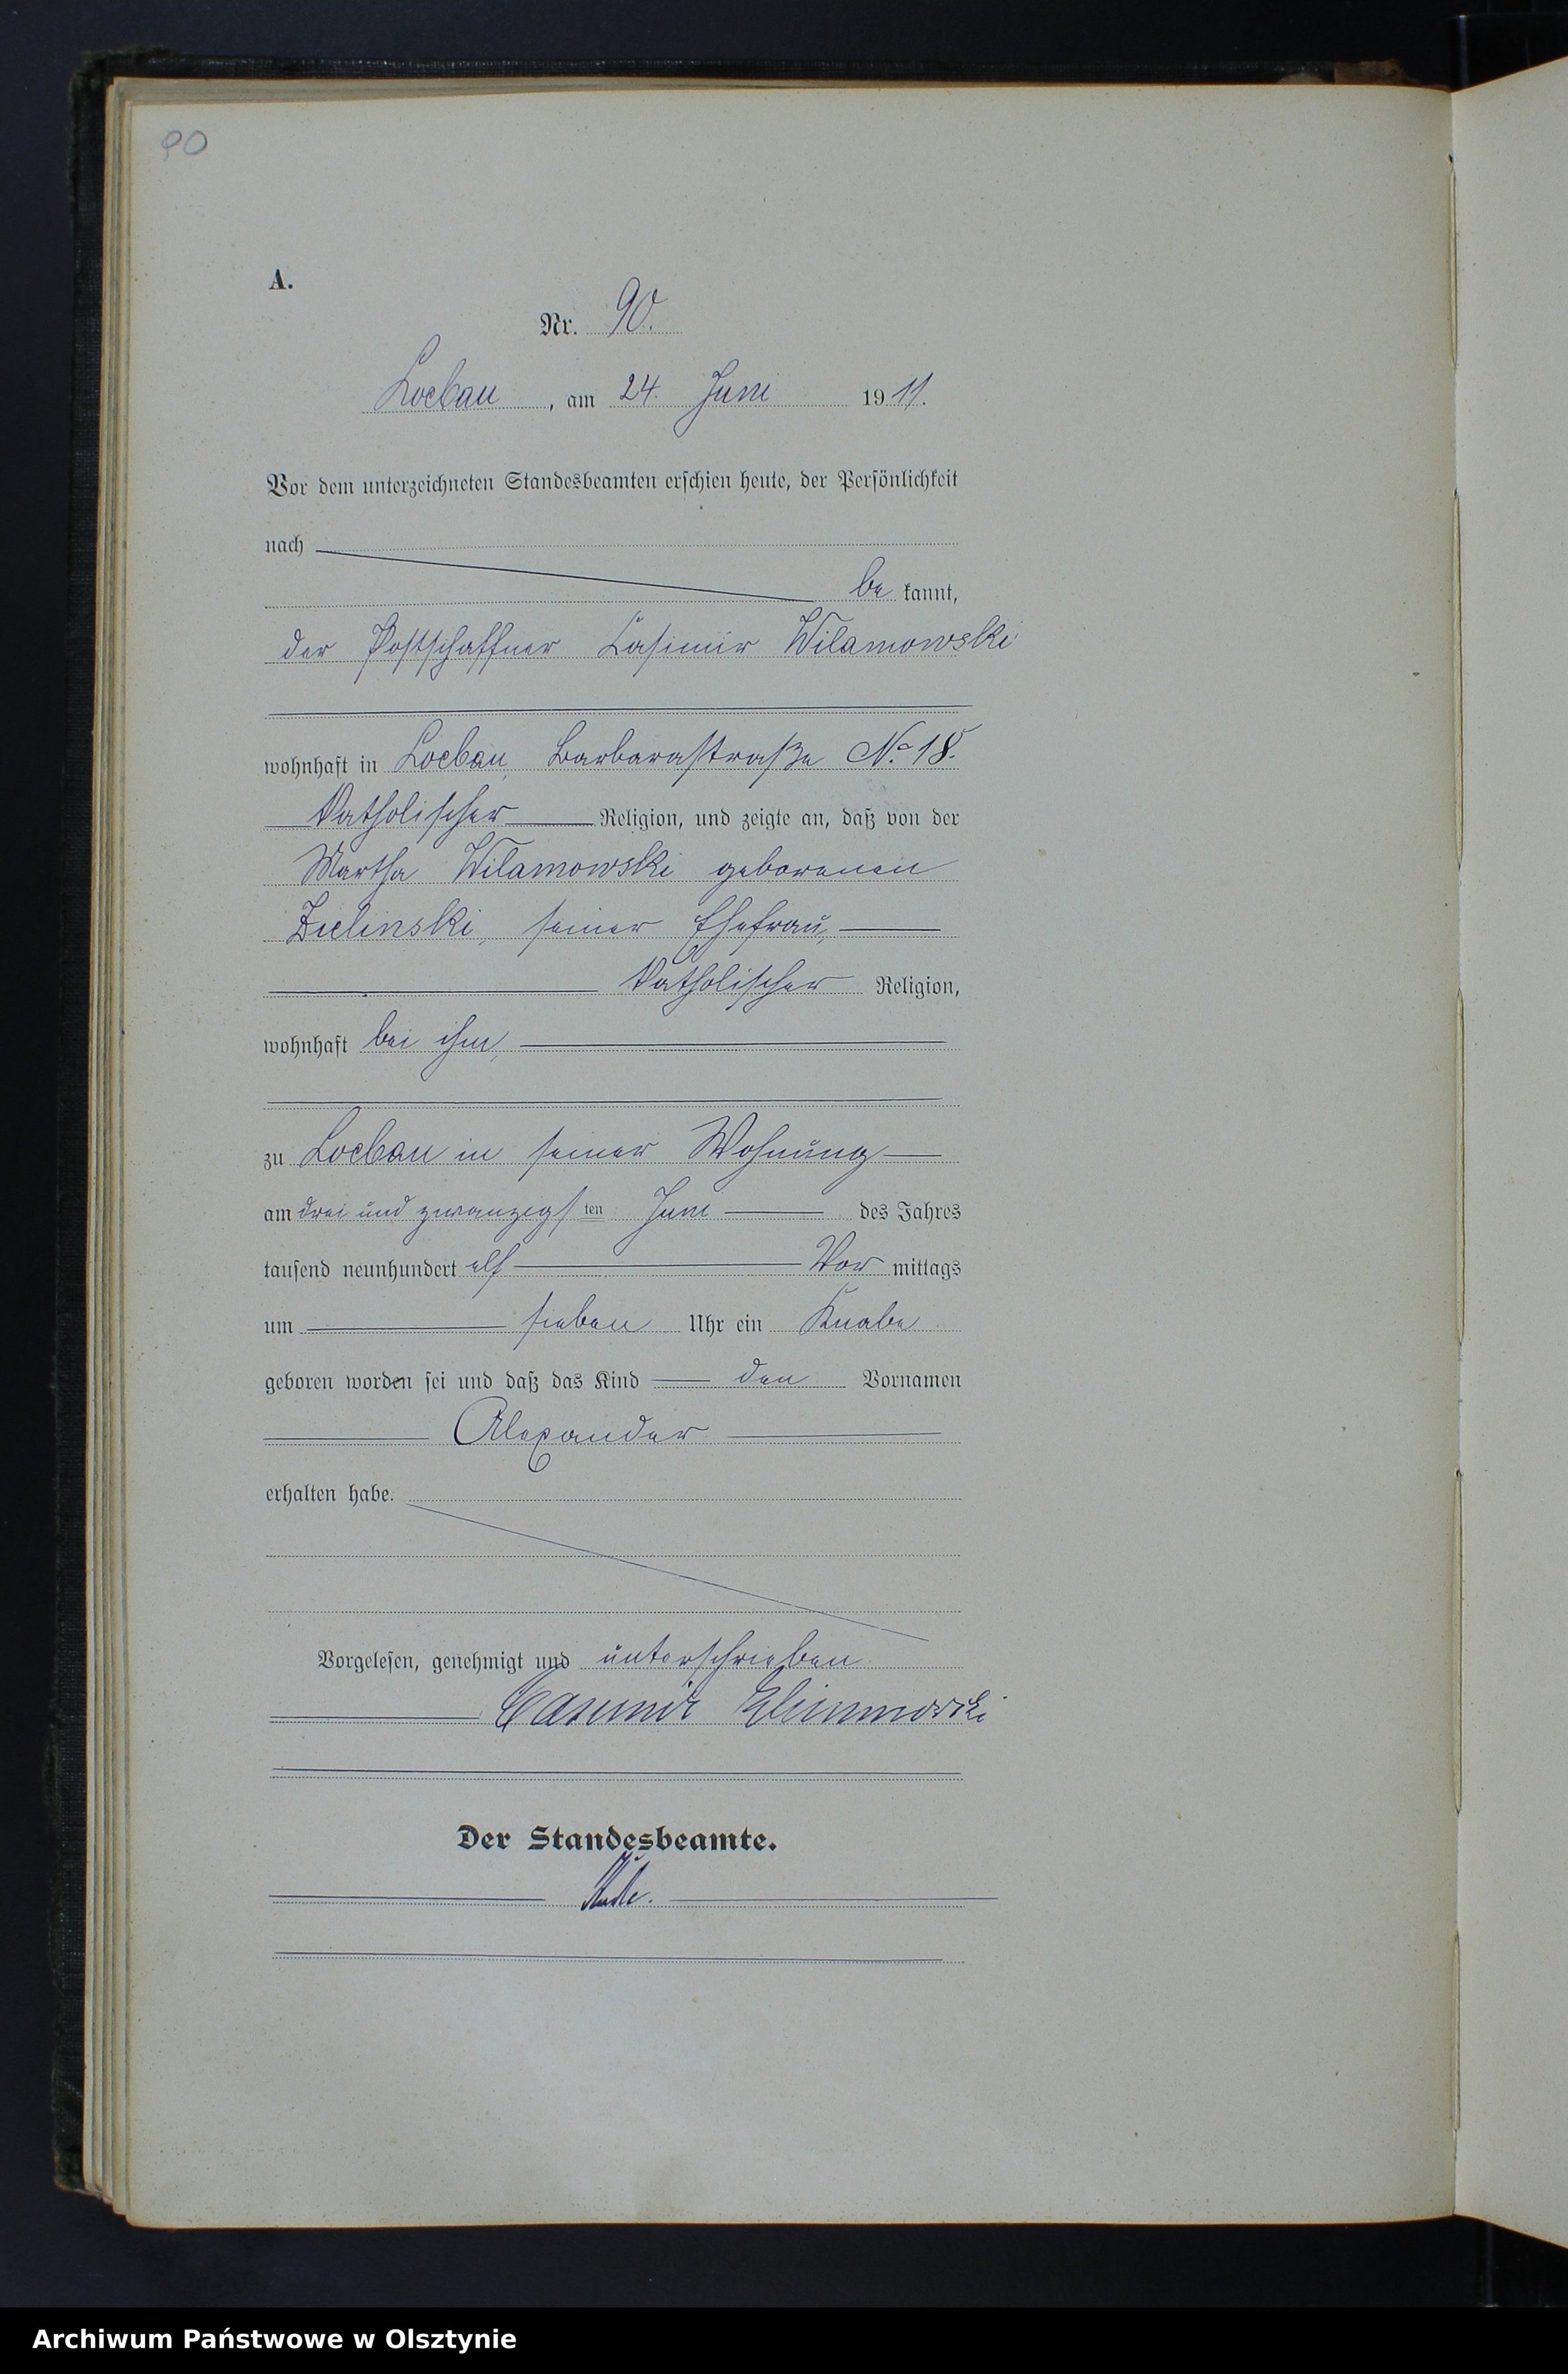 90
A.
Nr. 90.
Loebau, am 24. Juni 1911.
Vor dem unterzeichneten Standesbeamten erschien heute, der Persönlichkeit
nach
be kannt,
der Postschaffner Casimir Wilamowski
wohnhaft in Loebau, Barbarastraße No. 18.
katholischer Religion, und zeigte an, daß von der
Martha Wilamowski geborenen
Zielinski, seiner Ehefrau,
katholischer Religion,
wohnhaft bei ihm,
zu Loebau in seiner Wohnung
am drei und zwanzigsten Juni des Jahres
tausend neunhundert elf Vor mittags
um sieben Uhr ein Knabe
geboren worden sei und daß das Kind den Vornamen
Alexander
erhalten habe.
Vorgelesen, genehmigt und unterschrieben
Casimir
Der Standesbeamte.
Archiwum Państwowe w Olsztynie